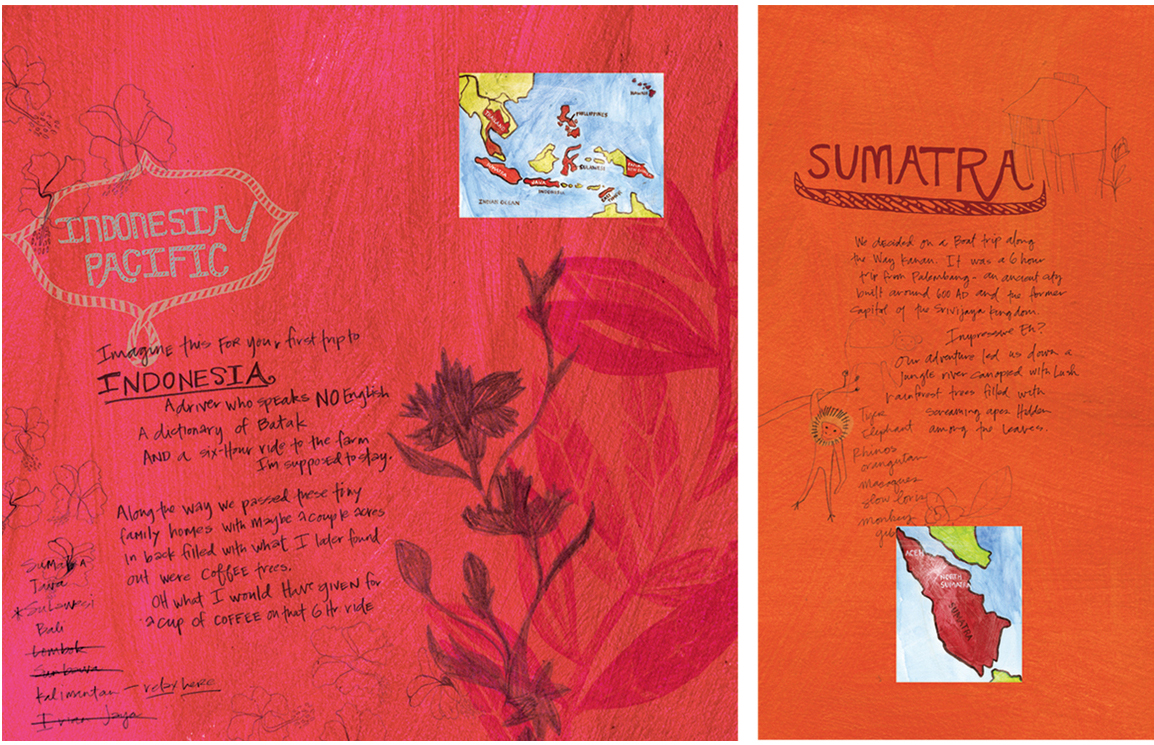 INDONESIA/
PACIFIC
Imagine this FOR your first trip to
INDONESIA
A driver who speaks NO English
A dictionary of Batak
AND a six-Hour ride to the farm
I'm supposed to stay.
Along the way we passed these tiny
family homes with Maybe a couple acres
in back filled with what I later found
out were COFFEE trees.
OH what I would Have GIVEN for
a cup of COFFEE on that 6 Hr ride
SUMATRA
Java
*Sulawesi
Bali
Lombok
Sumbawa
Kalimantan - relax here
Irian Jaya
PHILIPPINES
SULAWESI
JAVA
INDONESIA
INDIAN OCEAN
EAST TIMOR
SUMATRA
We decided on a Boat trip along
the Way Kanan. It was a 6 hour
trip from Palembang - an ancient city
built around 600 AD and the former
capitol of the Srivijaya Kingdom.
Impressive Eh?
Our adventure led us down a
jungle river canopied with Lush
rainforest trees filled with
screaming apes Hidden
among the leaves.
Tiger
Elephant
Rhinos
orangutan
macaques
slow loris
monkeys
ACEH
NORTH
SUMATRA
SUMATRA